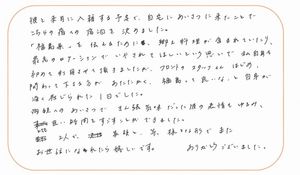 彼と来月に入籍する予定で、自宅にあいさつに来たことで
こちらの宿への宿泊を決めました。
"福島県"を伝えるために、郷土料理が含まれていたり、
最高のロケーションでいやされてほしいという思いで 私自身も
初めて利用させて頂きましたが、フロントのスタッフさんはじめ、
関わって下さる方があたたかく、福島って良いな、と自身が
強く感じられた1日でした。
両親へのあいさつで きん張気味だった彼の表情もゆるみ、
良い時間をすごすことができました。
2人で、 家族と、 お
世話になれたら嬉しいです。 ありがとうございました。